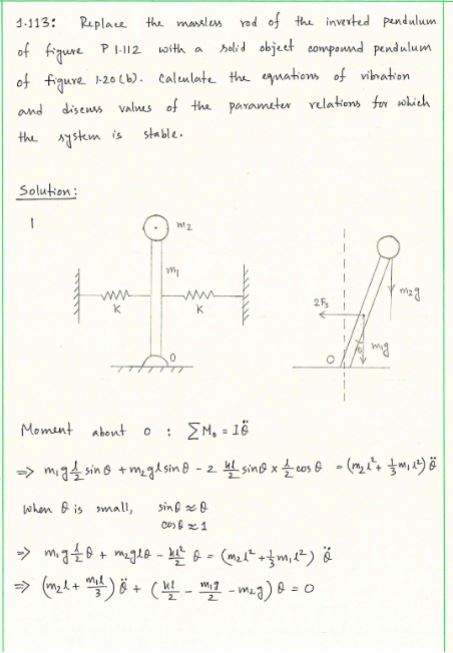 1.113: Replace the massless rod of the inverted pendulum
of figure P 1.112 with a solid object compound pendulum
of figure 1.20(b). Calculate the equations of vibration
and discuss values of the parameter relations for which
the system is stable.
Solution:
1
m2
m1
K K
O
2Fs
m2g
m1g
O
Moment about O : ΣMo = Iθ̈
⇒ m1g l/2 sinθ + m2gl sinθ - 2 kl/2 sinθ × l/2 cosθ = (m2l² + 1/3 m1l²) θ̈
When θ is small, sinθ ≈ θ
cosθ ≈ 1
⇒ m1g l/2 θ + m2glθ - kl²/2 θ = (m2l² + 1/3 m1l²) θ̈
⇒ (m2l + m1l/3) θ̈ + (kl/2 - m1g/2 - m2g) θ = 0